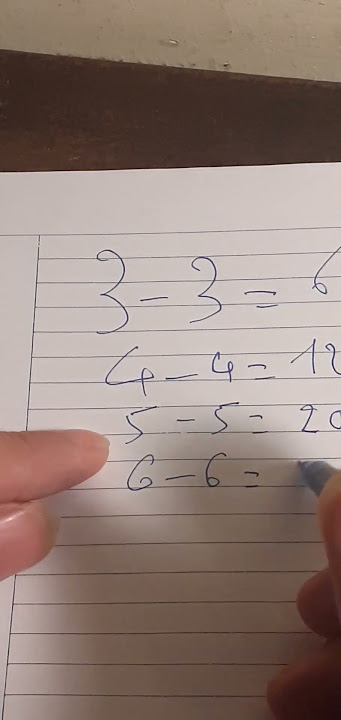 3 - 3 = 6
4 - 4 = 12
5 - 5 = 20
6 - 6 =